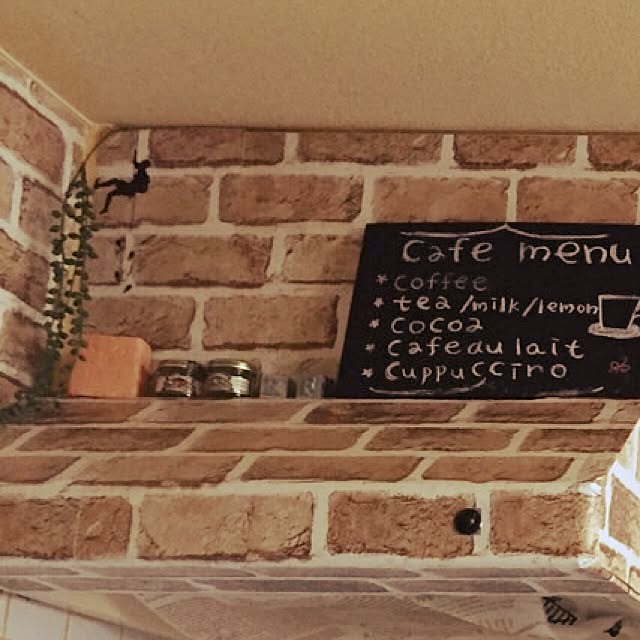 Cafe menu
* Coffee
* tea/milk/lemon
* cocoa
* Cafe au lait
* Cuppuccino